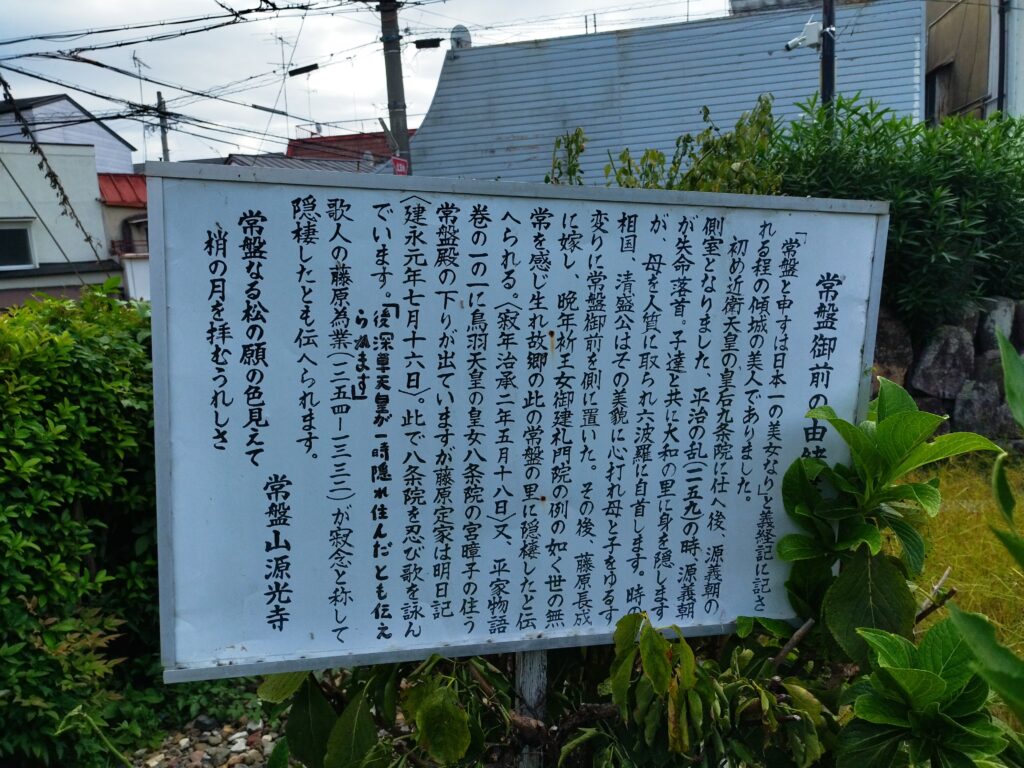 常盤御前の由緒
「常盤と申すは日本一の美女なり」と義経記に記さ
れる程の傾城の美人でありました。
初め近衛天皇の皇后九条院に仕へ後、源義朝の
側室となりました、平治の乱(一一五九)の時、源義朝
が失命落首。子達と共に大和の里に身を隠します
が、母を人質に取られ六波羅に自首します。時の
相国、清盛公はその美貌に心打れ母と子をゆるす
変りに常盤御前を側に置いた。その後、藤原長成
に嫁し、晩年祈王女御建礼門院の例の如く世の無
常を感じ生れ故郷の此の常盤の里に隠棲したと伝
へられる。〈寂年治承二年五月十八日〉又、平家物語
巻の一の一に鳥羽天皇の皇女八条院の宮暲子の住う
常盤殿の下りが出ていますが藤原定家は明月記
〈建永元年七月十六日〉。此で八条院を忍び歌を詠ん
でいます。「後深草天皇が一時隠れ住んだとも伝え
られます」
歌人の藤原為業(一二五四ー一三三三)が寂念と称して
隠棲したとも伝へられます。
常盤なる松の願の色見えて
梢の月を拝むうれしさ
常盤山源光寺